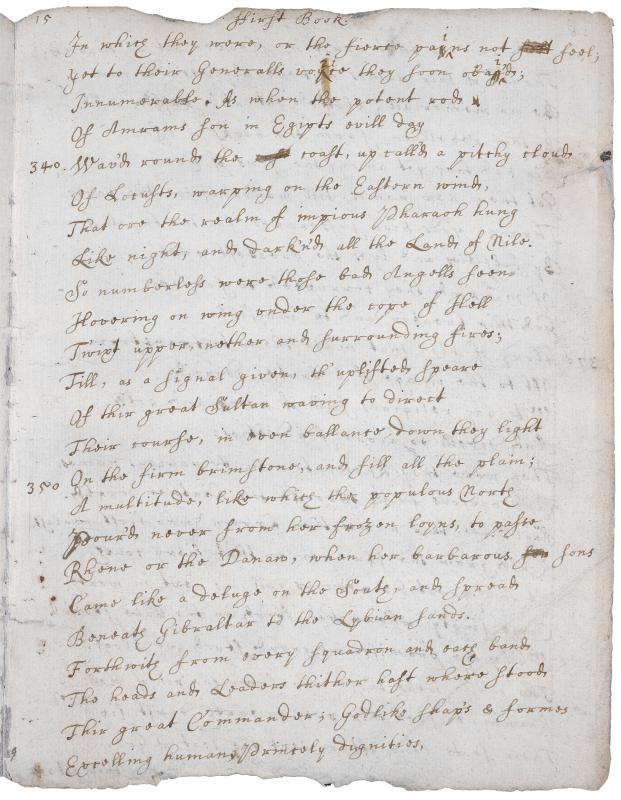 15 First Book.
In which they were, or the fierce payns not feel;
Yet to their Generalls voyce they soon obayd;
Innumerable. As when the potent rod
Of Amrams son in Egipts evill day
340. Wav'd round the coast, up call'd a pitchy cloud
Of Locusts, warping on the Eastern wind,
That ore the realm of impious Pharaoh hung
Like night, and dark'nd all the Land of Nile.
So numberless were those bad Angells seen
Hovering on wing under the cope of Hell
Twixt upper, nether and surrounding fires;
Till, as a signal given, th' uplifted speare
Of thir great Sultan waving to direct
Their course, in even ballance down they light
350 On the firm brimstone, and fill all the plain;
A multitude, like which the populous North
Pour'd never from her frozen loyns, to passe
Rhene or the Danaw, when her barbarous sons
Came like a deluge on the South, and spread
Beneath Gibraltar to the Lybian sands.
Forthwith from every squadron and each band
The heads and Leaders thither hast where stood
Thir great Commander; Godlike shap's & formes
Excelling human, Princely dignities,